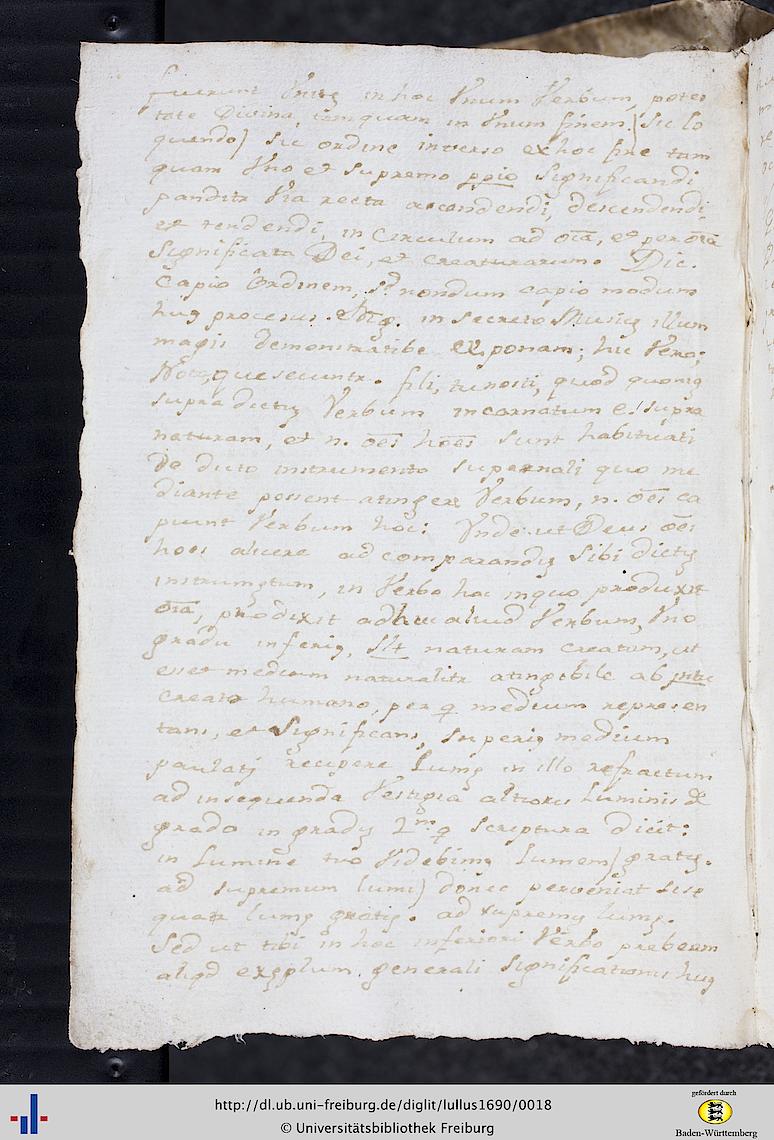 fuerunt Unitę in hoc Unum Verbum, potes
tate Divina, tamquam in Unum finem (sic lo
quendo) sic ordine inverso ex hoc fine tam
quam Uno et supremo ppio significandi
panditr Via recta ascendendi, descendendi,
et tendendi, in circulum ad oīa, et per oīa
significata Dei, et creaturarum. Dic.
Capio Ordinem, sd nondum capio modum
huɉ procesus. in secreto Musicę illum
magis demonstratibe exponam; hic Vero;
Nota, que secuntr. fili, tu nosti, quod
supra dictū Verbum incarnatum est supra
naturam, et n. oēs hoēs sunt habituati
de dicto instrumento supernali quo me
diante possent atingere Verbum, n. oēs ca
piunt Verbum hoc: Unde ut Deus oēs
hoēs alicere ad comparandū sibi dictū
instrumētum, in Verbo hoc in quo produxit
oīa, produxit adhuc aliud Verbum, Uno
gradu inferiɉ, naturam creatum, ut
esset medium naturalitr atingibile ab
creato humano, per q medium represen
tans, et Significans, superiɉ medium
paulatī recipere lumē in illo refractum
ad insequenda Vestigia altioris Luminis de
grado in gradū 2m q scriptura dicit:
in Lumine tuo Videbimɉ Lumem (gratię.
ad supremum lumē) donec perveniat
lumę gratię. ad supremū lumę.
Sed ut tibi in hoc inferiori Verbo prebeam
aliqd exēplum generali significationis huɉ
http://dl.ub.uni-freiburg.de/diglit/lullus1690/0018
© Universitätsbibliothek Freiburg
gefördert durch
Baden-Württemberg